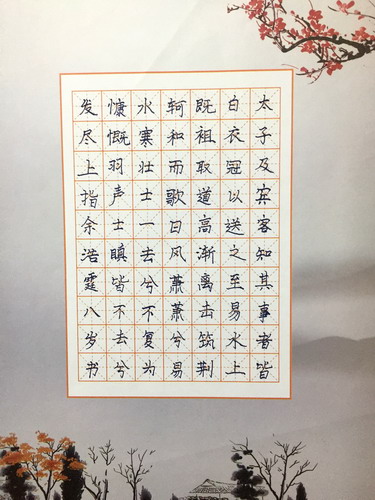 太子及宾客知其事者皆
白衣冠以送之至易水上
既祖取道高渐离击筑荆
轲和而歌曰风萧萧兮易
水寒壮士一去兮不复为
慷慨羽声士瞋皆不去兮
发尽上指余浩霆八岁书